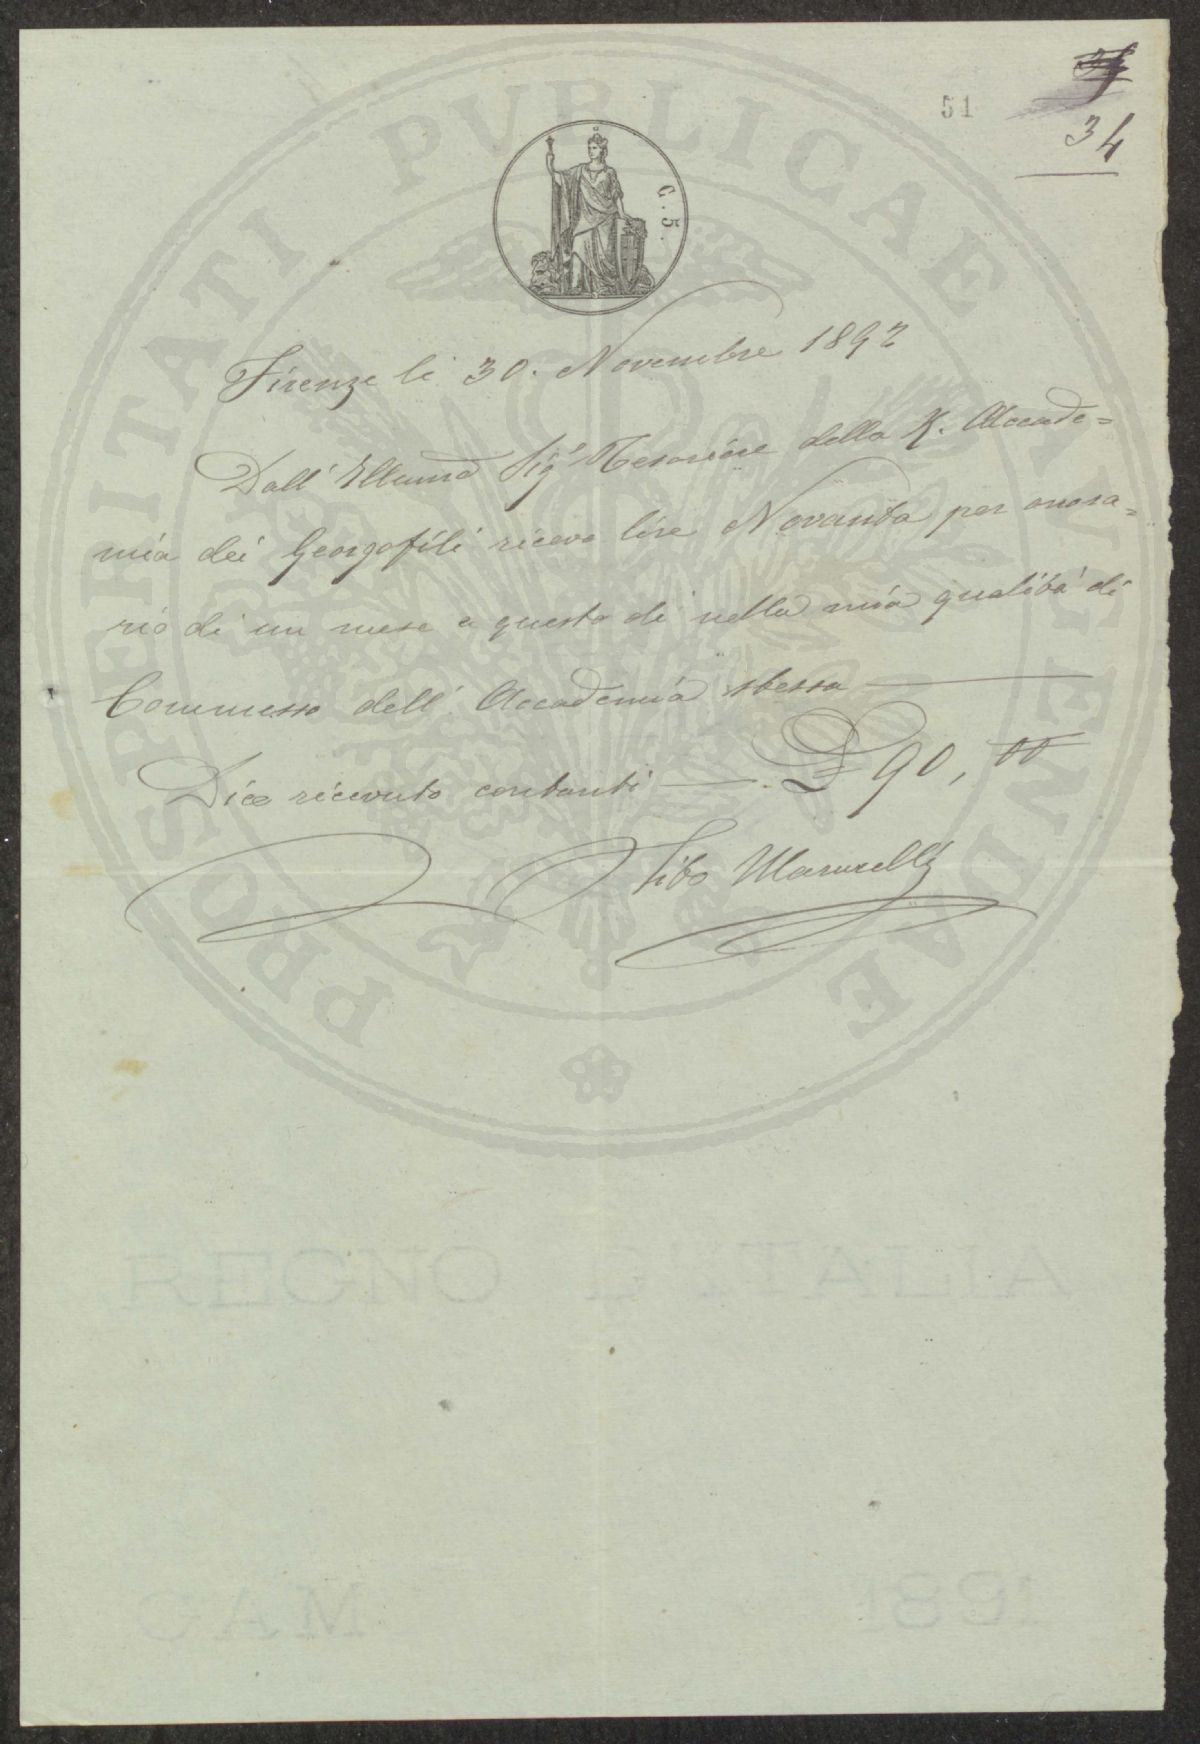 51
34
G. 5.
PROSPERITATI PVBLICAE AVGENDAE
Firenze li 30. Novembre 1892
Dall' Illumo Sigr Tesoriere della R. Accade=
mia dei Georgofili ricevo lire Novanta per onora=
rio di un mese a questo dì nella mia qualità di
Commesso dell' Accademia stessa
Dico ricevuto contanti — £ 90,00
Tito
REGNO D'ITALIA
CAM 1891